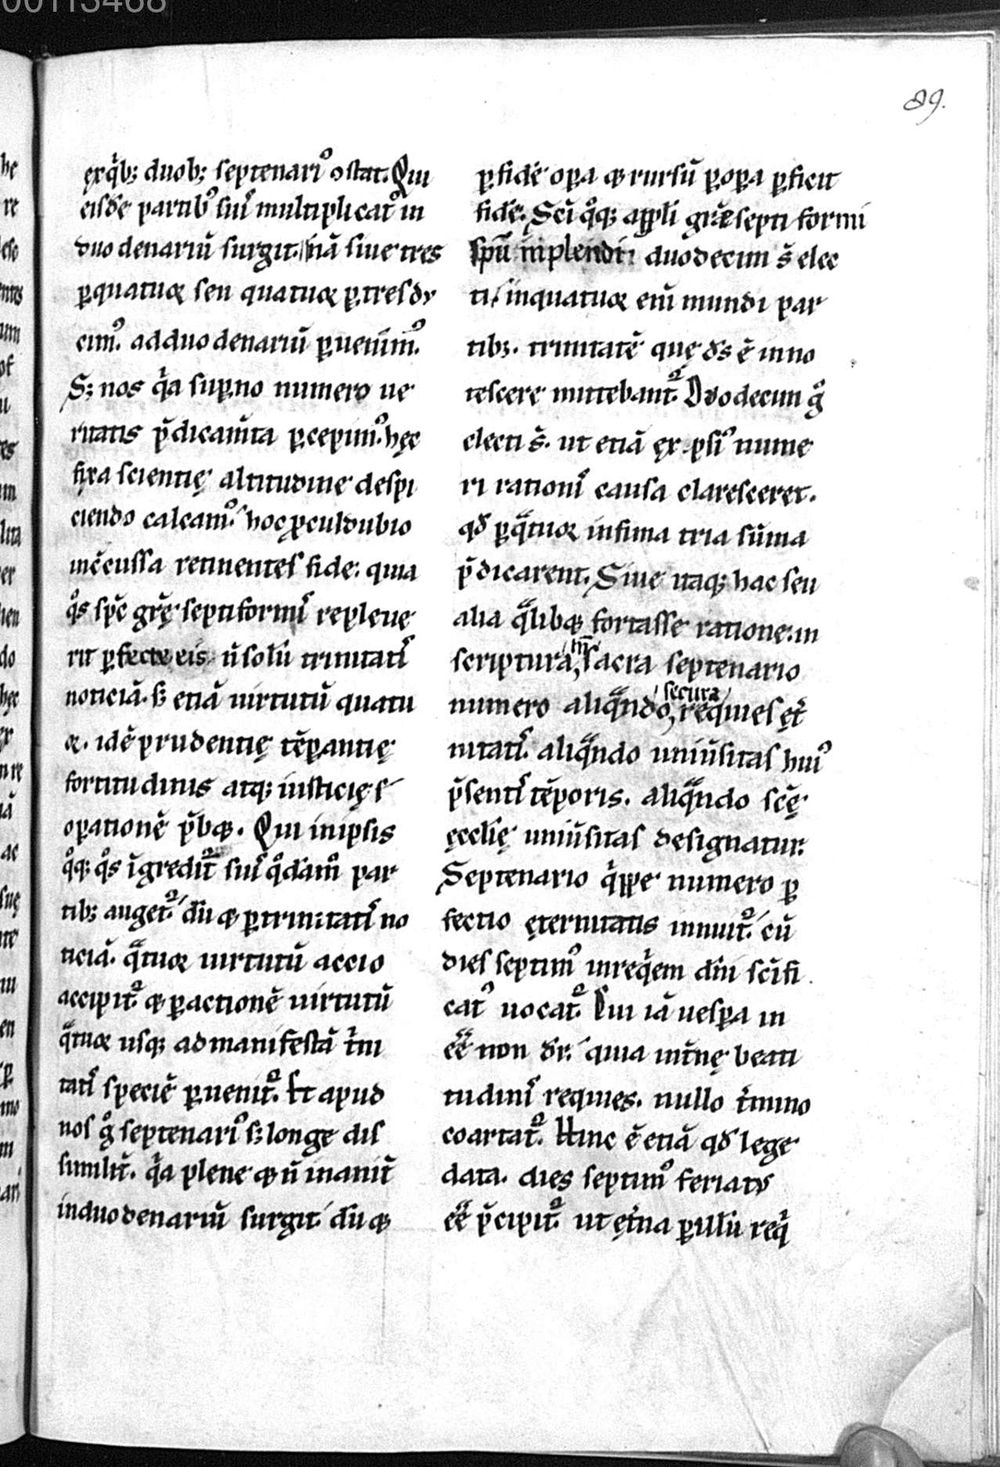 00113468
89.
ęxq̉b; duob; septenari᷒ ꝯstat. Qui
eisdē partib᷒ sui᷒ multiplicat᷒ in
duodenariū surgit. nā siue tres
ꝑquatuoꝝ seu quatuoꝝ ꝑtres du
cim᷒. adduodenariū ꝑuenim᷒.
S; nos q̉a supno numero ue
ritatis p̄dicam̄ta ꝑcepim᷒. hęc
fixa scientię altitudine despi
ciendo calcam᷒. hoc ꝓculdubio
incēussa retinentes fide. quia
q̉s spē grę septiformi᷒ repleue
rit ꝑfecte eis n̄ solū trinitati᷒
noticiā. s; etiā uirtutū quatu
oꝝ. idē prudentię tēꝑantię
fortitudinis atq; iusticięs
oꝑationē p̄b&. Qui inipsis
q̉q; q̉s īgredit᷒ sui᷒ q̉dām par
tib; auget᷒. dū & ꝑtrinitati᷒ no
ticiā. q̄tuoꝝ uirtutū accio
accipit᷒ & ꝑactionē uirtutū
q̄tuoꝝ usq; admanifestā t̄ni
tati᷒ speciē ꝑuenit᷒. Et apud
nos g̊ septenari᷒ s; longe dis
similit̄. q̉a plene & n̄ inanit̄
induodenariū surgit. dū &
ꝑfidē oꝑa & rursū ꝑoꝑa ꝑficit
fidē. Sc̄i q̉q; appli gr̄e septiformi
spū inplendi duodecim s̄ elec
ti. inquatuoꝝ enī mundi par
tib;. trinitatē quę d̄s ē inno
tescere mittebant᷒. Duodecim g̊
electi s̄. ut etiā ęx ipsi᷒ nume
ri rationi᷒ causa claresceret.
qd̄ ꝑq̄tuoꝝ infima tria sūma
p̄dicarent. Siue itaq; hac seu
alia q̄lib& fortasse ratione. in
scriptura, sacra septenario
numero aliq̄ndo secura requies ęt̄
nitati᷒. aliq̄ndo uniūsitas hui᷒
p̄senti᷒ tēporis. aliq̄ndo scę̄
ęcclię uniūsitas designatur.
Septenario q̉ppe numero ꝑ
fectio ęternitatis innuit᷒. cū
dies septim᷒ inreq̉em dn̄i sc̄ifi
cat᷒ uocat᷒. Cui iā uesꝑa in
eē non dr̄. quia int̄nę beati
tudini᷒ requies. nullo t̄mino
coartat᷒. Hinc ē etiā qd̄ lege
data. dies septim᷒ feriatus
eē p̄cipit᷒. ut ęt̄na ꝑillū req̉